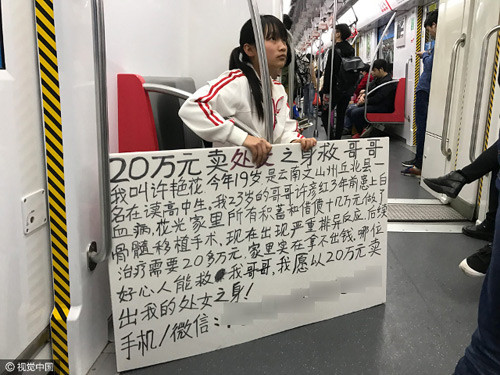 20万元卖处女之身救哥哥
我叫许艳花今年19岁是云南文山州丘北县一
名在读高中生,我23岁的哥哥许彦红3年前患上白
血病,花光家里所有积蓄和借债十几万元做了
骨髓移植手术,现在出现严重排异反应,后续
治疗需要20多万元,家里实在拿不出钱,哪位
好心人能救我哥哥,我愿以20万元卖
出我的处女之身!
手机/微信:
视觉中国